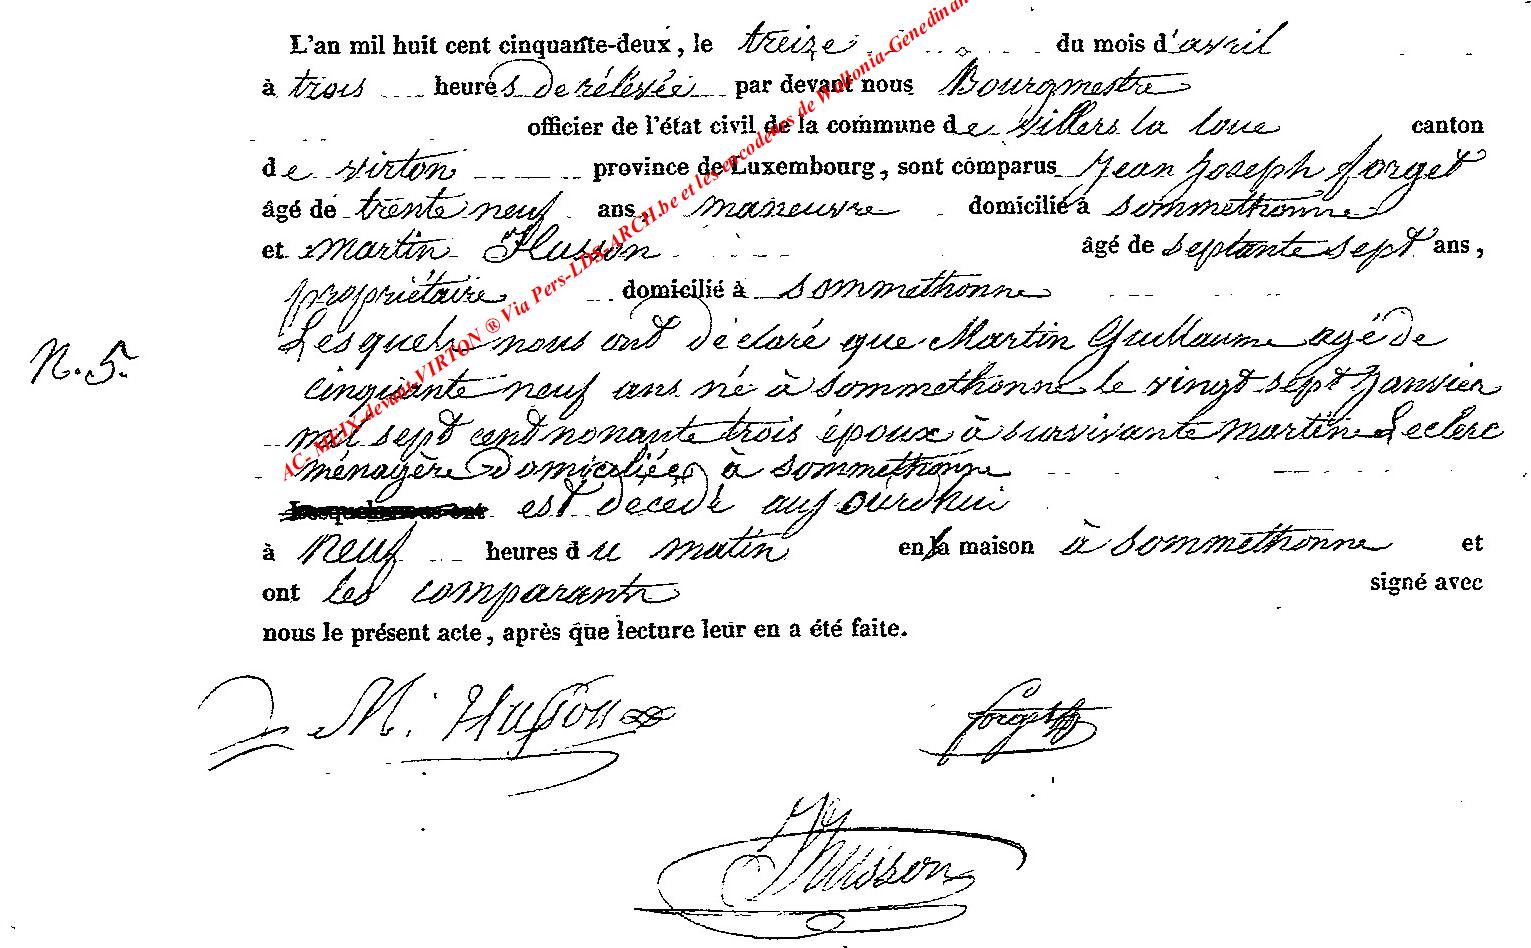 L'an mil huit cent cinquante-deux, le treize du mois d'avril
à trois heures de rélévée par devant nous Bourgmestre
officier de l'état civil de la commune de villers la loue canton
de virton province de Luxembourg, sont comparus Jean Joseph forget
âgé de trente neuf ans, maneuvre domicilié à sommethonne
et martin Husson âgé de septante sept ans,
propriétaire domicilié à sommethonne
Lesquels nous ont déclaré que Martin Guillaume agé de
N. 5.
cinquante neuf ans né à sommethonne le vingt sept Janvier
mil sept cent nonante trois époux à survivante martine Leclerc
ménagère domiciliée à sommethonne
Lesquels nous ont est décédé aujourdhui
à neuf heures du matin en la maison à sommethonne et
ont les comparants signé avec
nous le présent acte, après que lecture leur en a été faite.
M. Husson forget
Husson
AC- MEIX-devant-VIRTON ® Via Pers-LDS-ARCH.be et les encodeurs de Wallonia-Genedinan